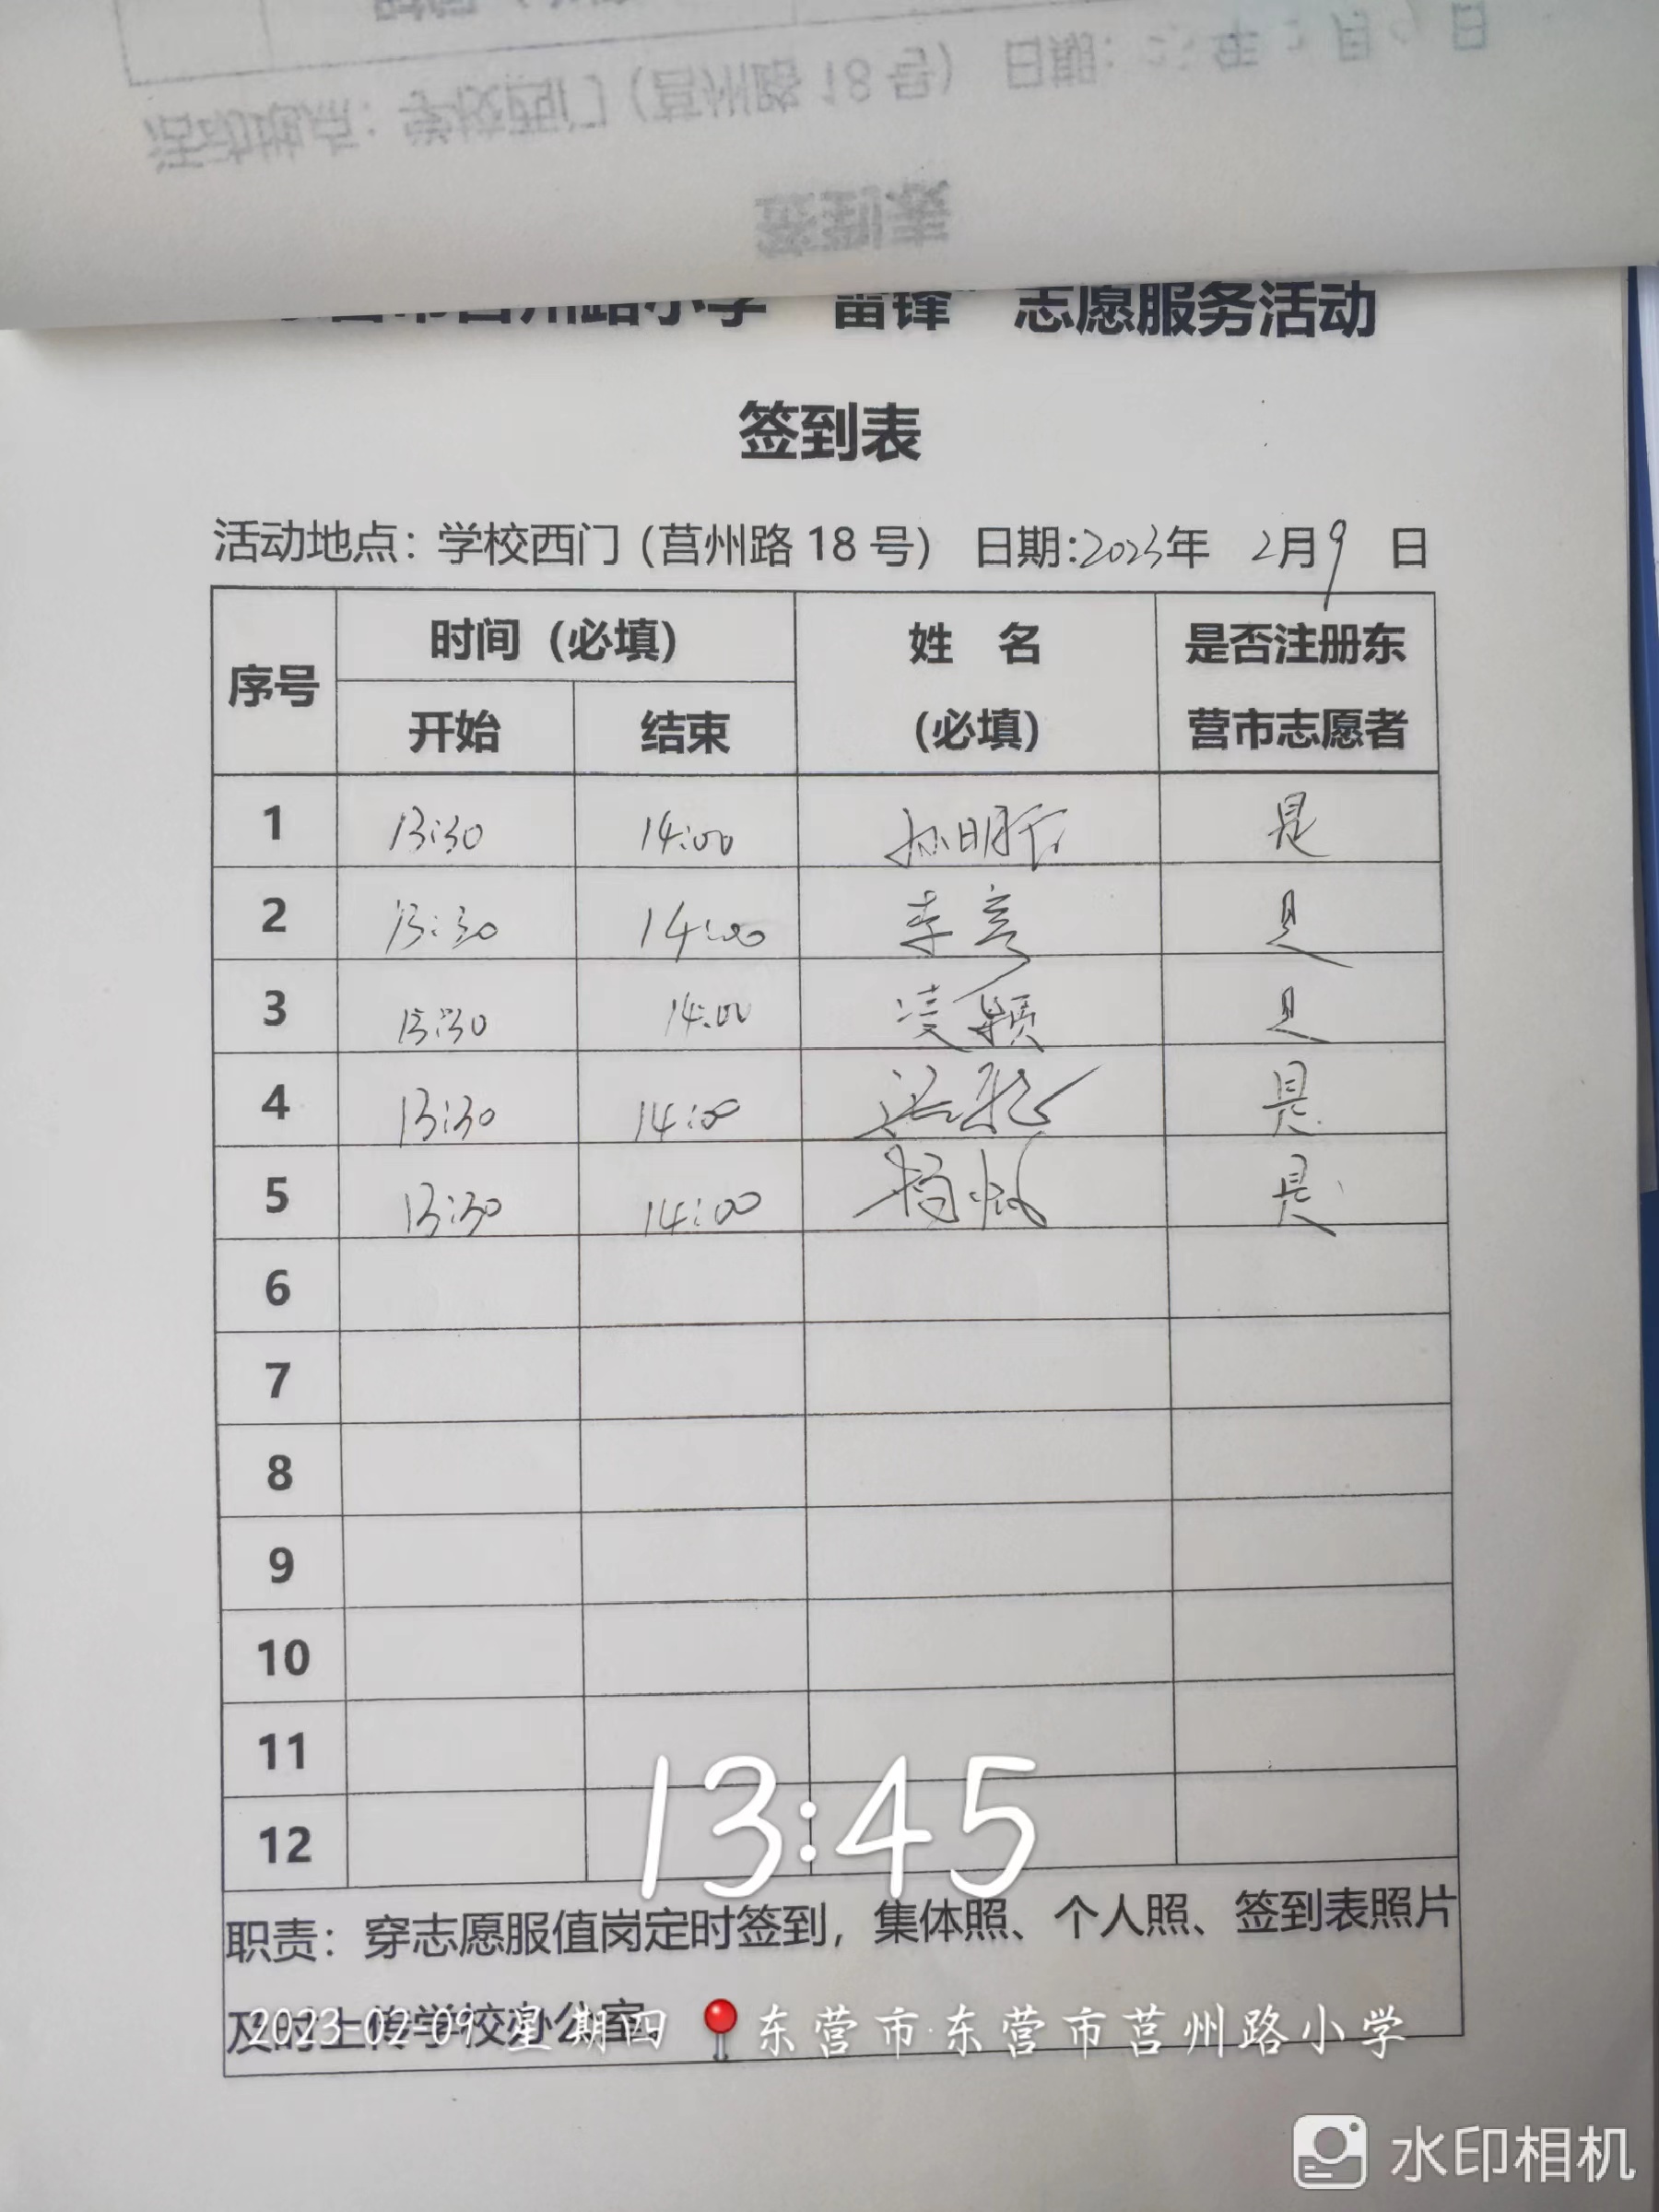 活动地点：学校西门（莒州路 18 号） 日期： 年 月 日
签到表
小学“雷锋”志愿服务活动
签到表
活动地点：学校西门（莒州路 18 号） 日期:2023年 2月9日
序号 时间（必填） 姓 名（必填） 是否注册东营市志愿者
开始 结束
1 13:30 14:00 孙明 是
2 13:30 14:00 李彦 是
3 13:30 14:00 凌颖 是
4 13:30 14:00 是
5 13:30 14:00 杨 是
6
7
8
9
10
11
12
13:45
职责：穿志愿服值岗定时签到，集体照、个人照、签到表照片
及时上传学校办公室。
2023-02-09 星期四 东营市·东营市莒州路小学
水印相机